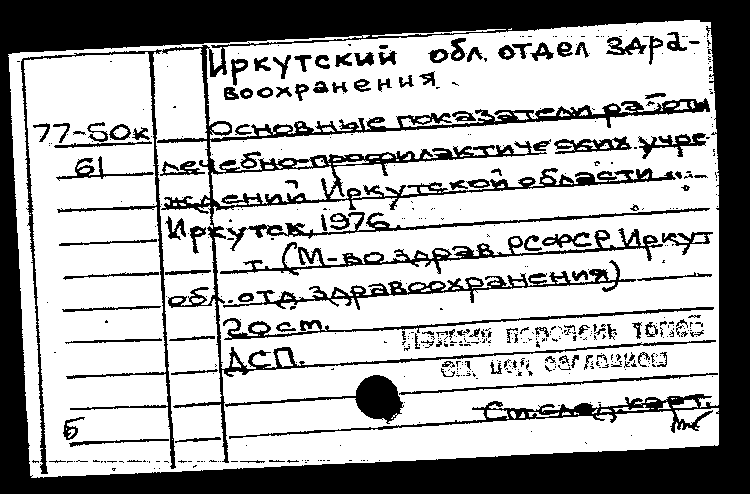 Иркутский обл. отдел здра-
воохранения.
77-50к Основные показатели работы
61 лечебно-профилактических учре
ждений Иркутской области ...
Иркутск, 1976.
т. (М-во здрав. РСФСР. Иркут
обл. отд. здравоохранения)
20 ст.
ДСП.
Полный перечень томов
см. под заглавием
См. след. карт.
Б